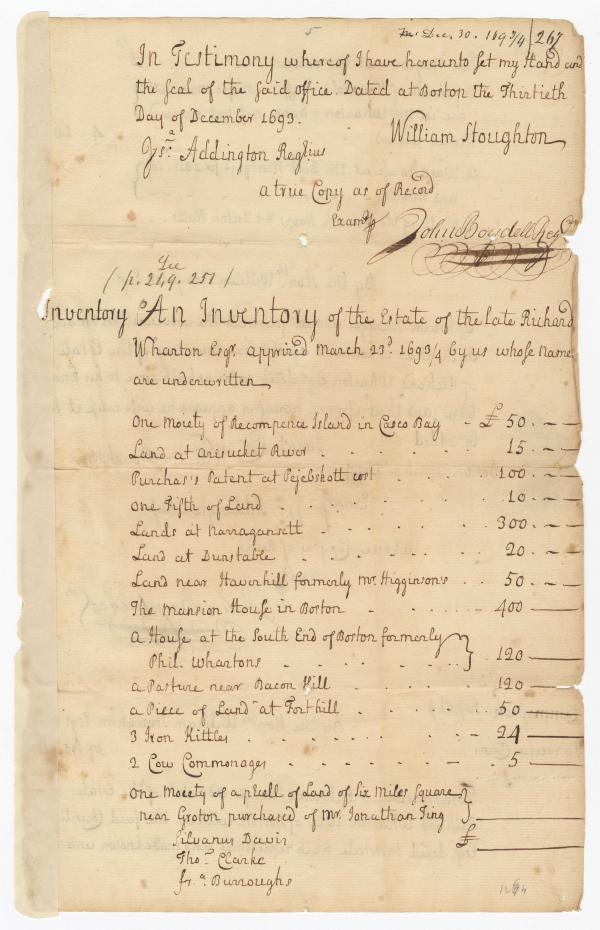 5
Dec. 30. 1693/4 | 267
In Testimony whereof I have hereunto set my Hand and
the seal of the said office. Dated at Boston the Thirtieth
Day of December 1693.
William Stoughton
Js.ᵃ Addington Regrius
a true Copy as of Record
Exam.d
John Bowdell Regr
See
( p. 249. 251 /
Inventory An Inventory of the Estate of the late Richard
Wharton Esqr. apprized March 23.d 1693/4 by us whose Names
are underwritten
One Moiety of Recompence Island in Casco Bay - £ 50. - -
Land at Arisucket River . . . 15. - -
Purchas's Patent at Pejebskott cost . . 100. - -
One Fifth of Land . . . . 10. - -
Lands at Narragansett . . . . 300. - -
Land at Dunstable . . . . 20. - -
Land near Haverhill formerly Mr. Higginson's . . 50. - -
The Mansion House in Boston . . . 400
a House at the South End of Boston formerly }
Phil. Whartons . . . . } 120
a Pasture near Bacon Hill . . . . 120
a Piece of Land at Forthill . . . . 50
3 Iron Kittles . . . . 24
2 Cow Commonages . . . . 5
One Moiety of a psell of Land of Six Miles Square }
near Groton purchased of Mr. Jonathan Ting }
Silvanus Davis £
Tho.s Clarke
Fr.a Burroughs
1264